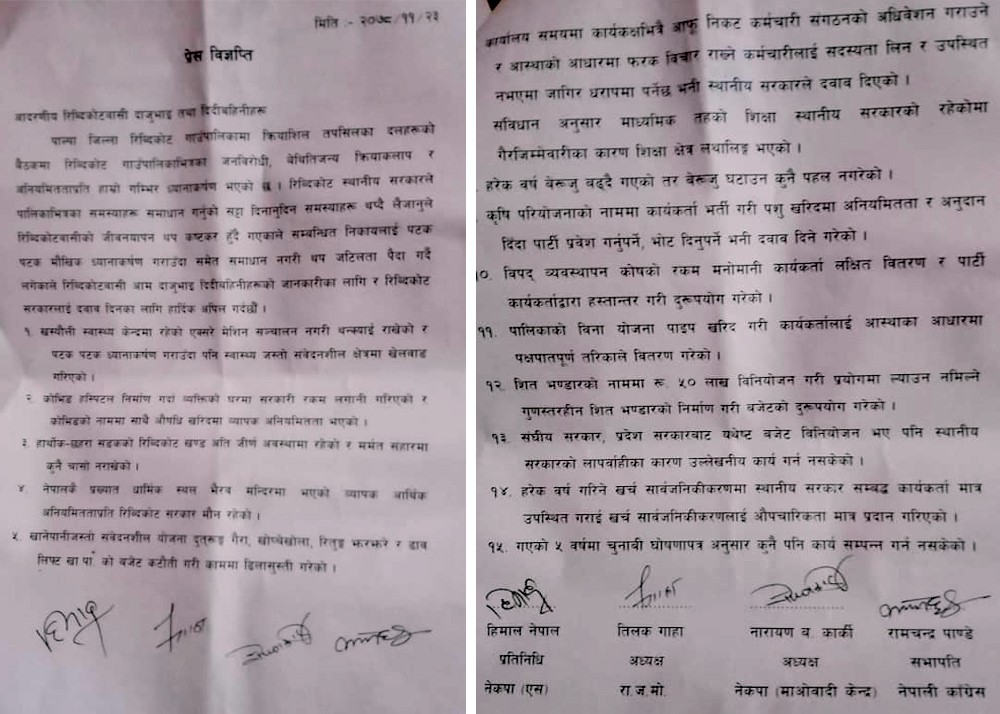 मिति :- २०७८/११/२३
प्रेस विज्ञप्ति
आदरणीय रिब्दिकोटवासी दाजुभाइ तथा दिदीबहिनीहरू
पाल्पा जिल्ला रिब्दिकोट गाउँपालिकामा क्रियाशिल तपसिलका दलहरूको
बैठकमा रिब्दिकोट गाउँपालिकाभित्रका जनविरोधी, बेथितिजन्य क्रियाकलाप र
अनियमितताप्रति हाम्रो गम्भिर ध्यानाकर्षण भएको छ । रिब्दिकोट स्थानीय सरकारले
पालिकाभित्रका समस्याहरू समाधान गर्नुको सट्टा दिनानुदिन समस्याहरू थप्दै लैजानुले
रिब्दिकोटवासीको जीवनयापन थप कष्टकर हुँदै गएकाले सम्बन्धित निकायलाई पटक
पटक मौखिक ध्यानाकर्षण गराउँदा समेत समाधान नगरी थप जटिलता पैदा गर्दै
लगेकाले रिब्दिकोटवासी आम दाजुभाइ दिदीबहिनीहरूको जानकारीका लागि र रिब्दिकोट
सरकारलाई दवाव दिनका लागि हार्दिक अपिल गर्दछौं ।
१. खस्यौली स्वास्थ्य केन्द्रमा रहेको एक्सरे मेशिन सञ्चालन नगरी थन्क्याई राखेको र
पटक पटक ध्यानाकर्षण गराउँदा पनि स्वास्थ्य जस्तो संवेदनशील क्षेत्रमा खेलवाड
गरिएको ।
२. कोभिड हस्पिटल निर्माण गर्दा व्यक्तिको घरमा सरकारी रकम लगानी गरिएको र
कोभिडको नाममा साथै औषधि खरिदमा व्यापक अनियमितता भएको ।
३. हार्थोक-छहरा सडकको रिब्दिकोट खण्ड अति जीर्ण अवस्थामा रहेको र मर्मत सहारमा
कुनै चासो नराखेको ।
४. नेपालकै प्रख्यात धार्मिक स्थल भैरव मन्दिरमा भएको व्यापक आर्थिक
अनियमितताप्रति रिब्दिकोट सरकार मौन रहेको ।
५. खानेपानीजस्ता संवेदनशील योजना दुतुरूङ गैरा, खोप्चेखोला, रितुङ झरझरे र ढाव
लिफ्ट खा.पा. को बजेट कटौती गरी काममा ढिलासुस्ती गरेको ।
कार्यालय समयमा कार्यकक्षभित्रै आफू निकट कर्मचारी संगठनको अधिवेशन गराउने
र आस्थाको आधारमा फरक विचार राख्ने कर्मचारीलाई सदस्यता लिन र उपस्थित
नभएमा जागिर धरापमा पर्नेछ भनी स्थानीय सरकारले दवाव दिएको ।
संविधान अनुसार माध्यमिक तहको शिक्षा स्थानीय सरकारको रहेकोमा
गैरजिम्मेवारीका कारण शिक्षा क्षेत्र लथालिङ्ग भएको ।
हरेक वर्ष बेरूजु बढ्दै गएको तर बेरूजु घटाउन कुनै पहल नगरेको ।
कृषि परियोजनाको नाममा कार्यकर्ता भर्ती गरी पशु खरिदमा अनियमितता र अनुदान
दिंदा पार्टी प्रवेश गर्नुपर्ने, भोट दिनुपर्ने भनी दवाव दिने गरेको ।
१०. विपद् व्यवस्थापन कोषको रकम मनोमानी कार्यकर्ता लक्षित वितरण र पार्टी
कार्यकर्ताद्वारा हस्तान्तर गरी दुरूपयोग गरेको ।
११. पालिकाको विना योजना पाइप खरिद गरी कार्यकर्तालाई आस्थाका आधारमा
पक्षपातपूर्ण तरिकाले वितरण गरेको ।
१२. शित भण्डारको नाममा रू. ५० लाख विनियोजन गरी प्रयोगमा ल्याउन नमिल्ने
गुणस्तरहीन शित भण्डारको निर्माण गरी बजेटको दुरूपयोग गरेको ।
१३. संघीय सरकार, प्रदेश सरकारबाट यथेष्ट बजेट विनियोजन भए पनि स्थानीय
सरकारको लापर्वाहीका कारण उल्लेखनीय कार्य गर्न नसकेको ।
१४. हरेक वर्ष गरिने खर्च सार्वजनिकीकरणमा स्थानीय सरकार सम्बद्ध कार्यकर्ता मात्र
उपस्थित गराई खर्च सार्वजनिकीकरणलाई औपचारिकता मात्र प्रदान गरिएको ।
१५. गएको ५ वर्षमा चुनावी घोषणापत्र अनुसार कुनै पनि कार्य सम्पन्न गर्न नसकेको ।
हिमाल नेपाल तिलक गाहा नारायण ब. कार्की रामचन्द्र पाण्डे
प्रतिनिधि अध्यक्ष अध्यक्ष सभापति
नेकपा (एस) रा.ज.मो. नेकपा (माओवादी केन्द्र) नेपाली कांग्रेस